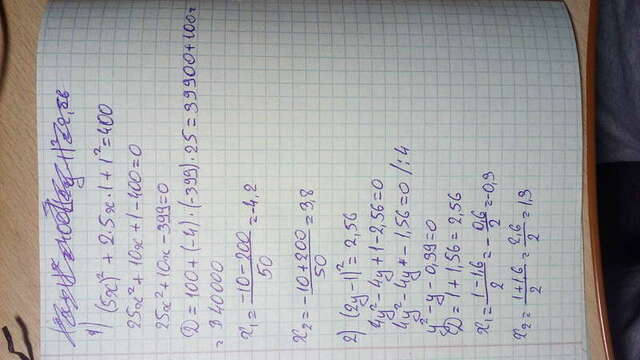 1) (5x)² + 2·5x·1 + 1² = 400
25x² + 10x + 1 - 400 = 0
25x² + 10x - 399 = 0
D = 100 + (-4)·(-399)·25 = 39900 + 100 =
= 340000
x₁ = (-10 - 200)/50 = -4,2
x₂ = (-10 + 200)/50 = 3,8
2) (2y - 1)² = 2,56
4y² - 4y + 1 - 2,56 = 0
4y² - 4y + 1,56 = 0 /:4
y² - y - 0,39 = 0
D = 1 + 1,56 = 2,56
x₁ = (1 - 1,6)/2 = -0,6/2 = -0,3
x₂ = (1 + 1,6)/2 = 2,6/2 = 1,3